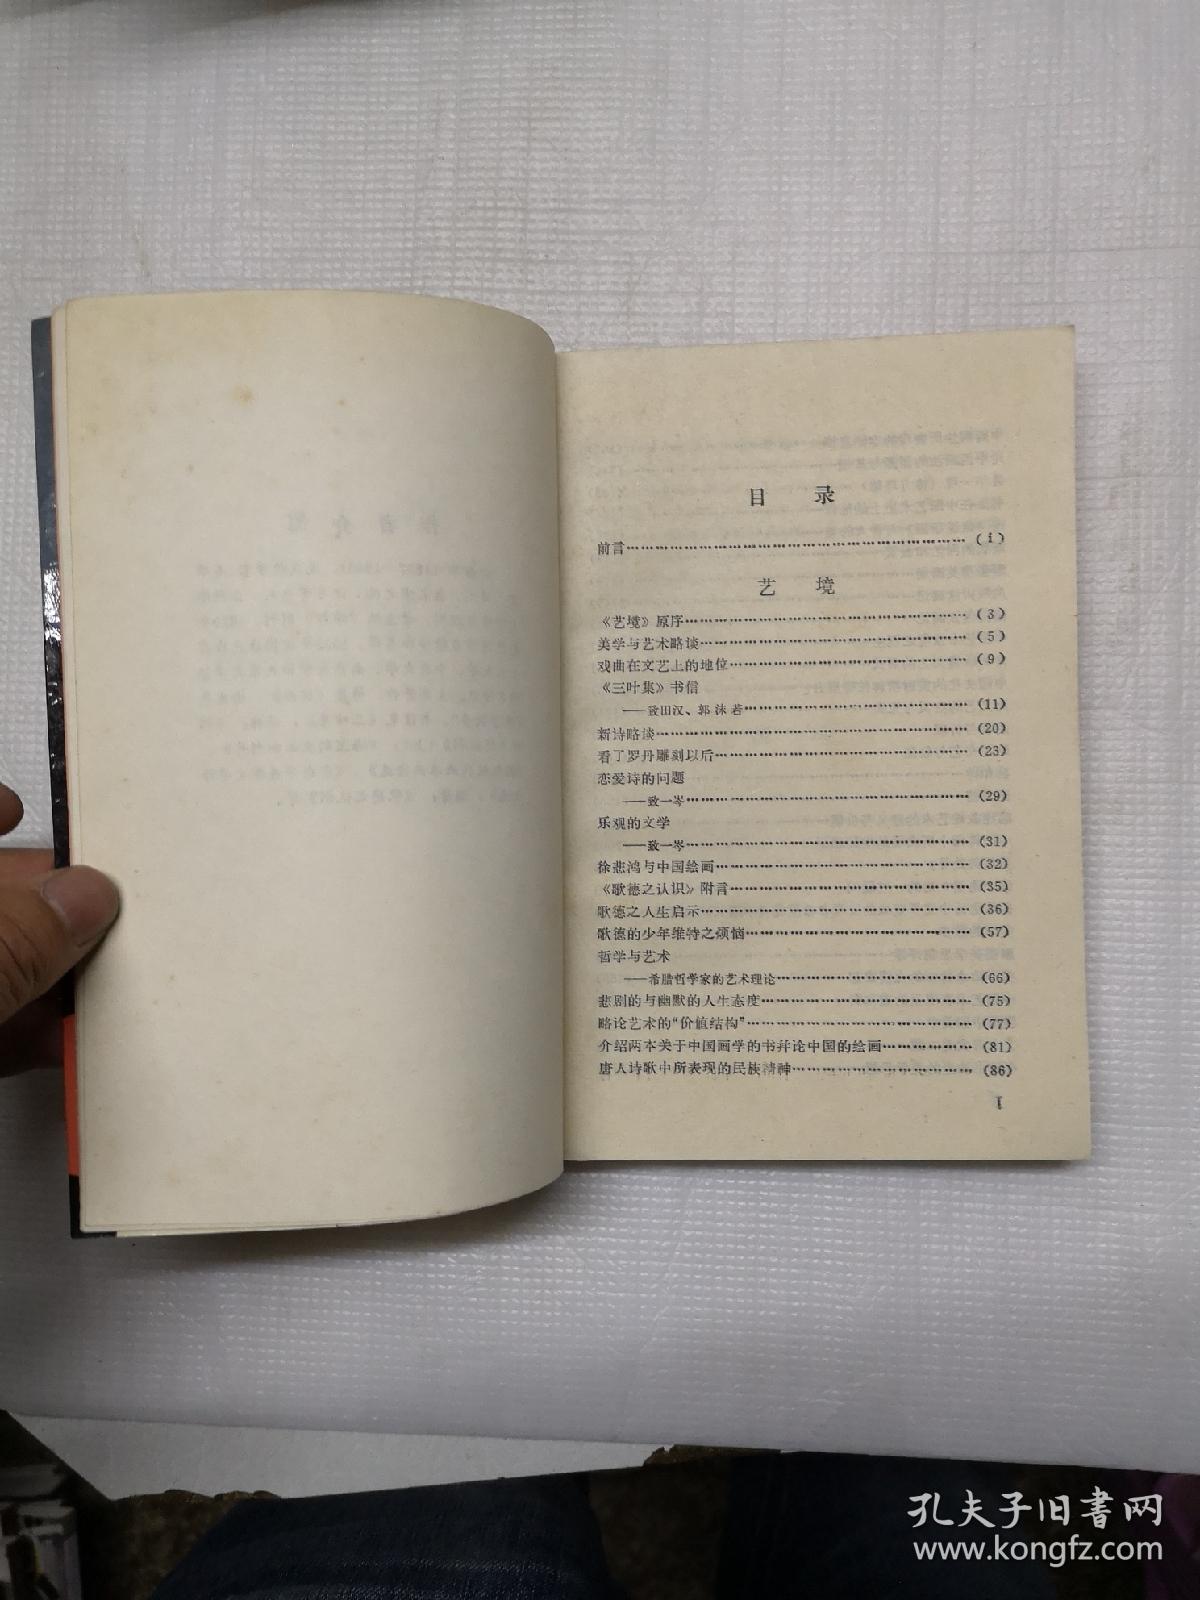 目 录
前言………………………………………………………………(i)
艺 境
《艺境》原序………………………………………………(3)
美学与艺术略谈………………………………………………(5)
戏曲在文艺上的地位…………………………………………(9)
《三叶集》书信
——致田汉、郭沫若…………………………………(11)
新诗略谈………………………………………………………(20)
看了罗丹雕刻以后……………………………………………(23)
恋爱诗的问题
——致一岑……………………………………………(29)
乐观的文学
——致一岑……………………………………………(31)
徐悲鸿与中国绘画……………………………………………(32)
《歌德之认识》附言…………………………………………(35)
歌德之人生启示………………………………………………(36)
歌德的少年维特之烦恼………………………………………(57)
哲学与艺术
——希腊哲学家的艺术理论…………………………(66)
悲剧的与幽默的人生态度……………………………………(75)
略论艺术的“价值结构”……………………………………(77)
介绍两本关于中国画学的书并论中国的绘画………………(81)
唐人诗歌中所表现的民族精神………………………………(86)
1
孔夫子旧书网
www.kongfz.com